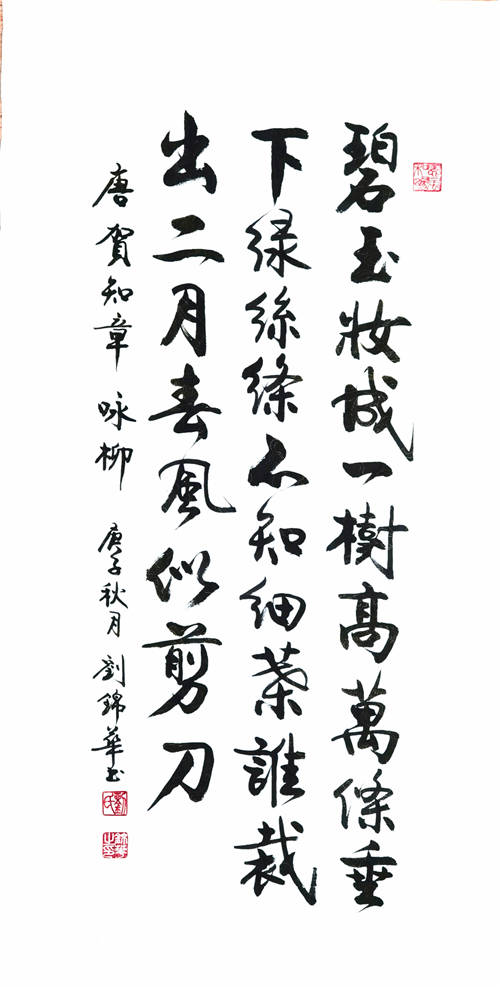 碧玉妝城一樹高萬條垂
下緑絲絛不知細葉誰裁
出二月春風似剪刀
唐賀知章 咏柳 庚子秋月 劉錦華书